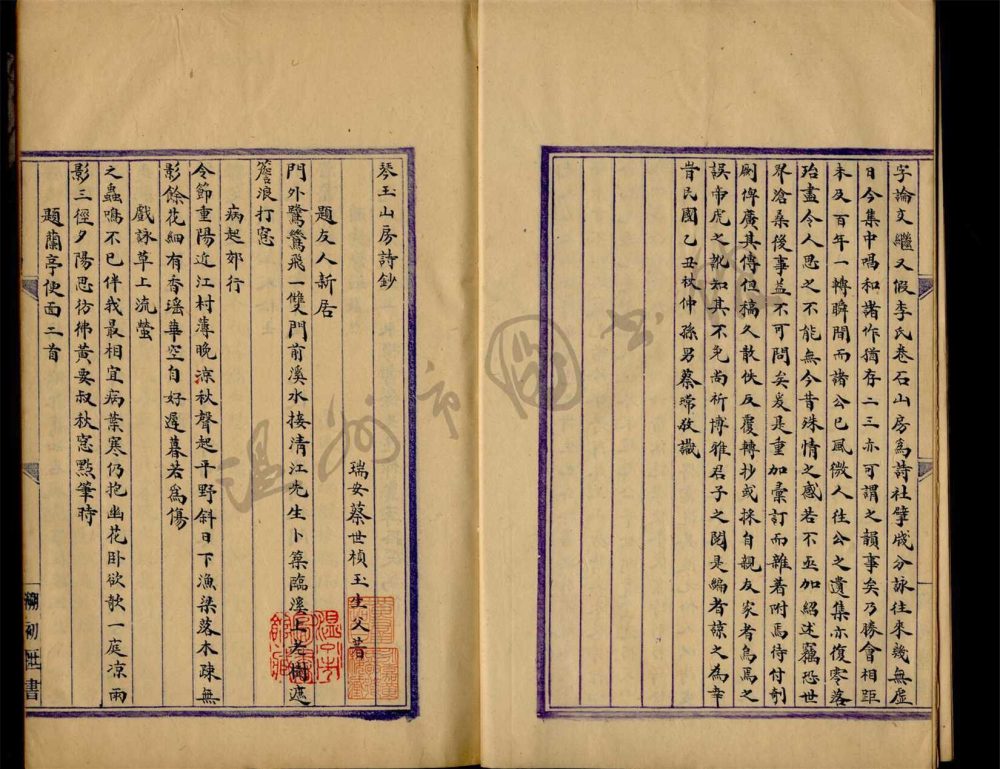 字論文繼又假李氏卷石山房為詩社擘牋分詠往來幾無虛
日今集中唱和諸作猶存二三亦可謂之韻事矣乃勝會相距
未及百年一轉瞬間而諸公已風微人往公之遺集亦復零落
殆盡令人思之不能無今昔殊情之感若不亟加紹述竊恐世
界滄桑後事益不可問矣爰是重加彙訂而雜著附焉待付剞
劂俾廣其傳但稿久散佚反覆轉抄或採自親友家者烏焉之
誤帝虎之訛如其不免尚祈博雅君子之閱是編者諒之為幸
旹民國乙丑秋仲孫男蔡瑺敬識
琴玉山房詩鈔
瑞安蔡世楨玉生父著
題友人新居
門外鷺鷥飛一雙門前溪水接清江先生卜築臨溪上老樹遮
簷浪打窓
病起郊行
令節重陽近江村薄晚涼秋聲起平野斜日下漁梁落木疎無
影餘花細有香瑤華空自好遲暮若為傷
戲詠草上流螢
之蟲鳴不已伴我最相宜病葉寒仍抱幽花臥欲欹一庭凉雨
影三徑夕陽思彷彿黃要叔秋窓點筆時
題蘭亭便面二首
初
書
溫州市圖書館